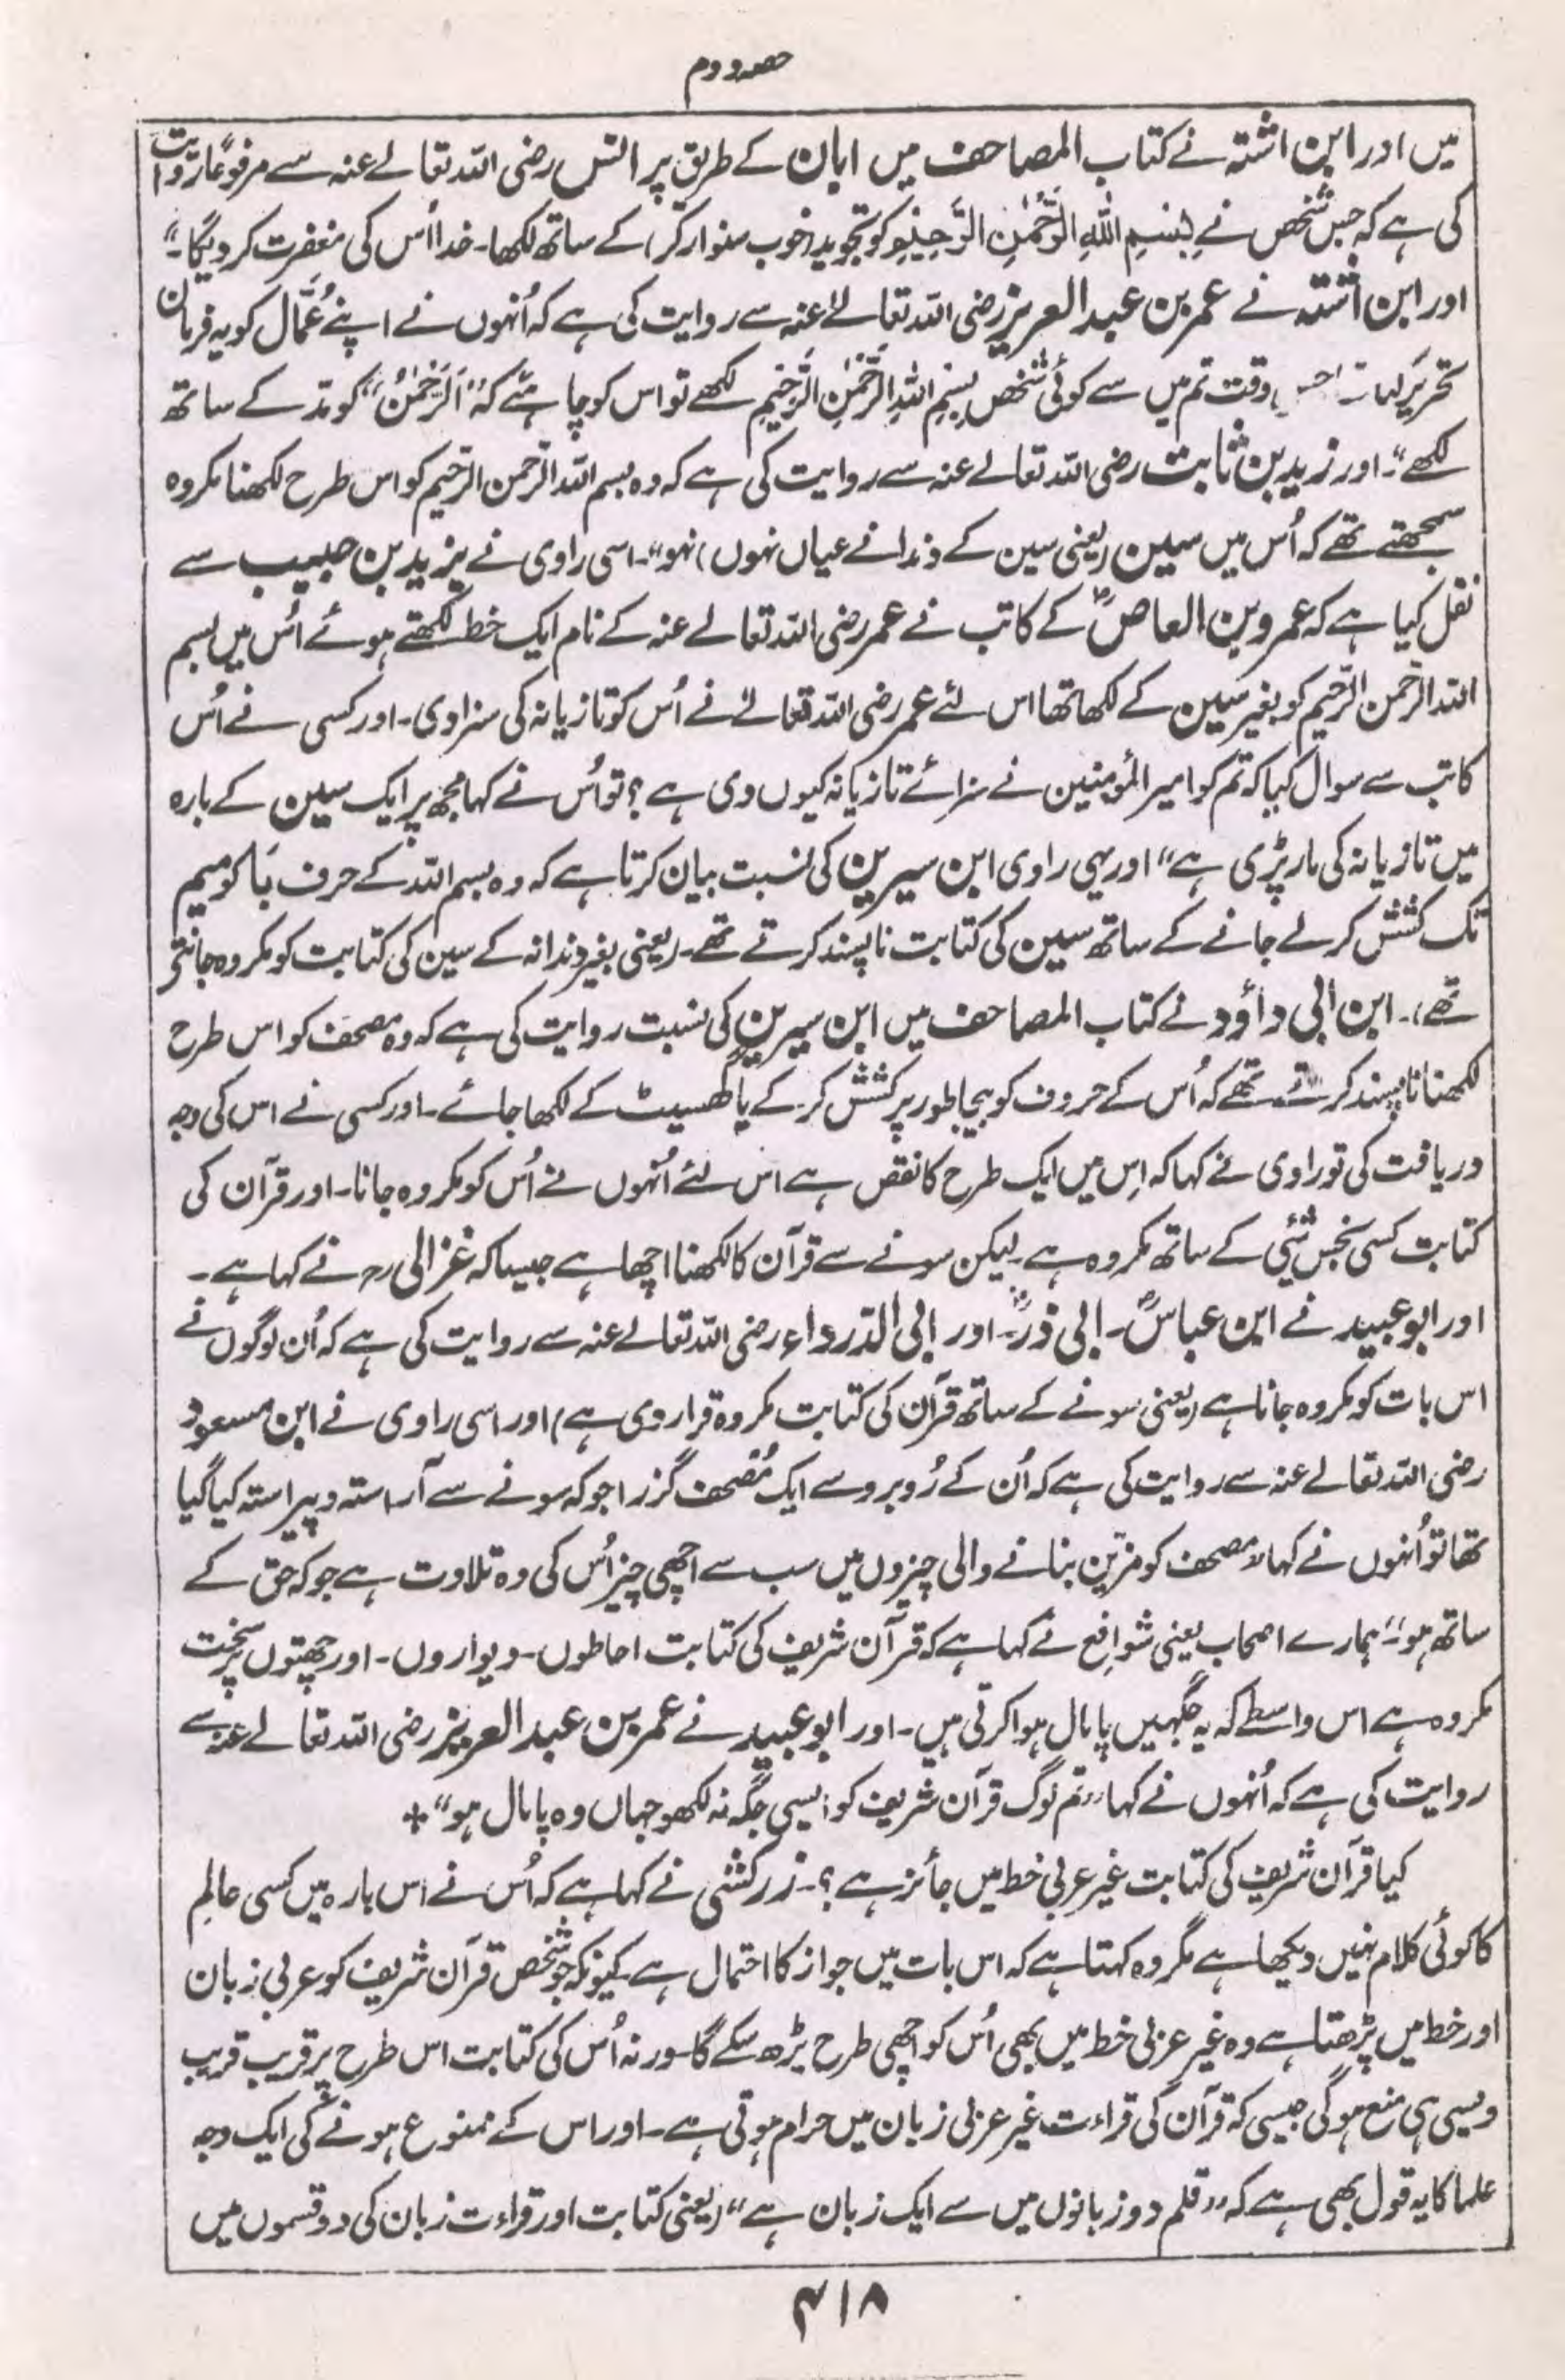 حصہ دوم
میں اور ابن اشتہ نے کتاب المصاحف میں ابان کے طریق پر انس رضی اللہ تعالے عنہ سے مرفوعاً روایت
کی ہے کہ جس شخص نے بِسْمِ اللّٰہِ الرَّحْمٰنِ الرَّحِیْمِ کو تجوید (خوب سنوار کر) کے ساتھ لکھا۔ خدا اُس کی مغفرت کر دیگا۔“
اور ابن اشتہ نے عمر بن عبد العزیز رضی اللہ تعالےٰ عنہ سے روایت کی ہے کہ اُنہوں نے اپنے عُمَّال کو یہ فرمان
تحریر کیا وقت تم میں سے کوئی شخص بِسْمِ اللّٰہِ الرَّحْمٰنِ الرَّحِیْمِ لکھے تو اس کو چاہئے کہ ”اَلرَّحْمٰنُ“ کو مدّ کے ساتھ
لکھے“۔ اور زید بن ثابت رضی اللہ تعالے عنہ سے روایت کی ہے کہ وہ بسم اللہ الرّحمن الرّحیم کو اس طرح لکھنا مکروہ
سمجھتے تھے کہ اُس میں سین (یعنی سین کے دندانے عیاں نہوں) نہو“۔ اسی راوی نے یزید بن حبیب سے
نقل کیا ہے کہ عمرو بن العاصؓ کے کاتب نے عمر رضی اللہ تعالے عنہ کے نام ایک خط لکھتے ہوئے اُس میں بسم
اللہ الرّحمن الرّحیم کو بغیر سین کے لکھا تھا اس لئے عمر رضی اللہ تعالےٰ نے اُس کو تازیانہ کی سزا دی۔ اور کسی نے اُس
کاتب سے سوال کیا کہ تم کو امیر المؤمنین نے سزائے تازیانہ کیوں دی ہے؟ تو اُس نے کہا مجھ پر ایک سین کے بارہ
میں تازیانہ کی مار پڑی ہے“ اور یہی راوی ابن سیرین کی نسبت بیان کرتا ہے کہ وہ بسم اللہ کے حرف بَا کو میم
تک کشش کر لے جانے کے ساتھ سین کی کتابت ناپسند کرتے تھے۔ (یعنی بغیر دندانہ کے سین کی کتابت کو مکروہ جانتے
تھے)۔ ابن ابی داؤد نے کتاب المصاحف میں ابن سیرین کی نسبت روایت کی ہے کہ وہ مصحف کو اس طرح
لکھنا ناپسند کرتے تھے کہ اُس کے حروف کو بیجا طور پر کشش کر کے یا گھسیٹ کے لکھا جائے۔ اور کسی نے اس کی وجہ
دریافت کی تو راوی نے کہا کہ اِس میں ایک طرح کا نقص ہے اس لئے اُنہوں نے اُس کو مکروہ جانا۔ اور قرآن کی
کتابت کسی نجس شئی کے ساتھ مکروہ ہے۔ لیکن سونے سے قرآن کا لکھنا اچھا ہے جیسا کہ غزالی رح نے کہا ہے۔
اور ابو عبید نے ابن عباسؓ۔ ابی ذرؓ۔ اور ابی الدّرداء رضی اللہ تعالے عنہ سے روایت کی ہے کہ اُن لوگوں نے
اس بات کو مکروہ جانا ہے (یعنی سونے کے ساتھ قرآن کی کتابت مکروہ قرار دی ہے) اور اسی راوی نے ابن مسعود
رضی اللہ تعالے عنہ سے روایت کی ہے کہ اُن کے رُوبرو سے ایک مُصحف گزرا جو کہ سونے سے آراستہ و پیراستہ کیا گیا
تھا تو اُنہوں نے کہا ”مصحف کو مزین بنانے والی چیزوں میں سب سے اچھی چیز اُس کی وہ تلاوت ہے جو کہ حق کے
ساتھ ہو“۔ ہمارے اصحاب یعنی شوافع نے کہا ہے کہ قرآن شریف کی کتابت احاطوں۔ دیواروں۔ اور چھتوں پر سخت
مکروہ ہے اس واسطے کہ یہ جگہیں پامال ہوا کرتی ہیں۔ اور ابو عبید نے عمر بن عبد العزیز رضی اللہ تعالے عنہ سے
روایت کی ہے کہ اُنہوں نے کہا ”تم لوگ قرآن شریف کو ایسی جگہ نہ لکھو جہاں وہ پامال ہو“ *
کیا قرآن شریف کی کتابت غیر عربی خط میں جائز ہے؟۔ زرکشی نے کہا ہے کہ اُس نے اس بارہ میں کسی عالِم
کا کوئی کلام نہیں دیکھا ہے مگر وہ کہتا ہے کہ اس بات میں جواز کا احتمال ہے کیونکہ جو شخص قرآن شریف کو عربی زبان
اور خط میں پڑھتا ہے وہ غیر عربی خط میں بھی اُس کو اچھی طرح پڑھ سکے گا۔ ورنہ اُس کی کتابت اس طرح پر قریب قریب
ویسی ہی منع ہو گی جیسی کہ قرآن کی قراءت غیر عربی زبان میں حرام ہوتی ہے۔ اور اس کے ممنوع ہونے کی ایک وجہ
علما کا یہ قول بھی ہے کہ ”قلم دو زبانوں میں سے ایک زبان ہے“ (یعنی کتابت اور قراءت زبان کی دو قسموں میں
۴۱۸